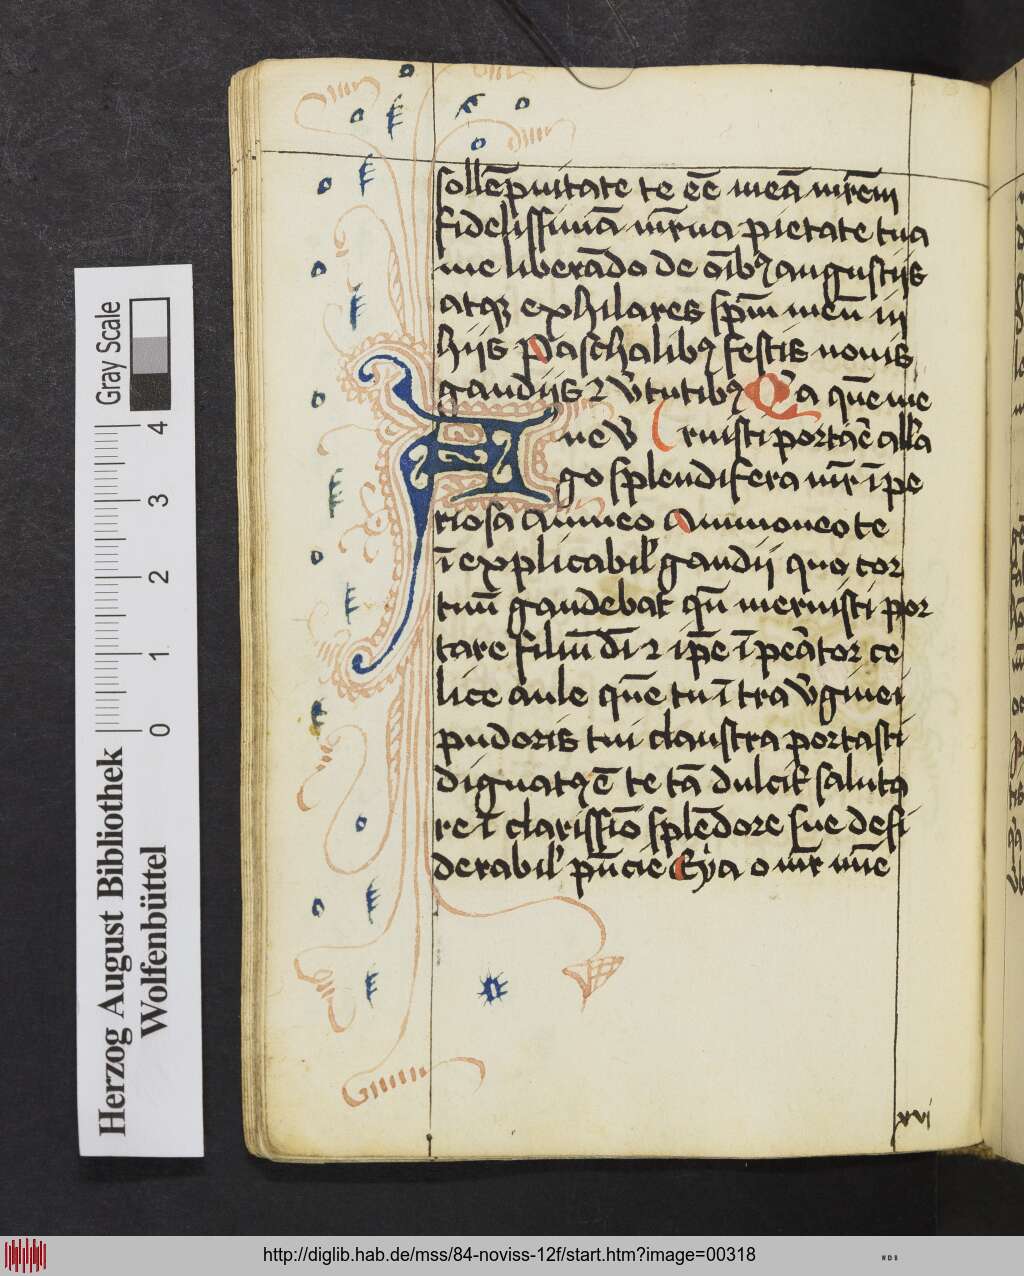 sollēpnitate te eē meā mr̄em
fidelissimā mr̄na pietate tua
me liberādo de oībꝫ angustijs
atqꝫ exhilares sp̄m meū in
hijs Paschalibꝫ festis nouis
gaudijs ⁊ v̄tutibꝫ Q̄a quē me
ue v̄ ruisti portaē alla
go splendifera mr̄ īpe
riosa ammeo Ammoneo te
īexplicabil' gaudii quo cor
tuū gaudebat qn̄ meruisti por
tare filiū dī ⁊ ip̄e īpeātor ce
lice aule quē tu ītra v̄ginei
pudoris tui claustra portasti
dignatꝫ ē te tā dulcit̄ saluta
re ī clarissīo splēdore sue desi
derabil' pn̄cie Eya o mr̄ mūe
xvi
Gray Scale
4
3
2
1
0
Herzog August Bibliothek
Wolfenbüttel
http://diglib.hab.de/mss/84-noviss-12f/start.htm?image=00318